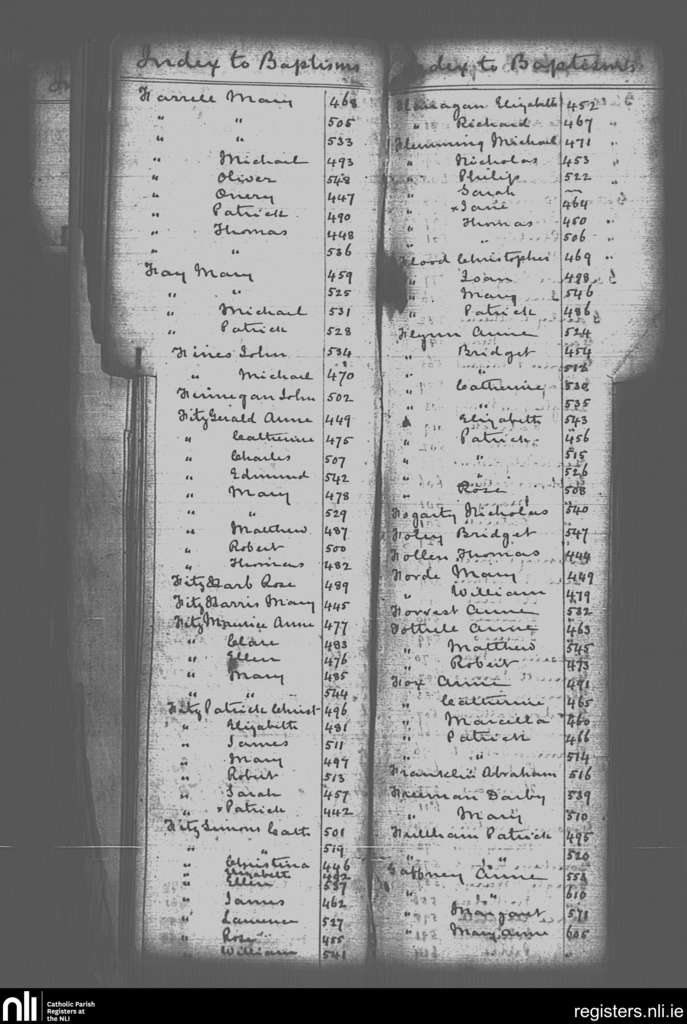 Index to Baptisms
Farrell Mary 468
" " 505
" " 533
" Michael 493
" Oliver 548
" Onery 447
" Patrick 490
" Thomas 448
" " 536
Fay Mary 459
" " 525
" Michael 531
" Patrick 528
Fines John 534
" Michael 470
Finnegan John 502
FitzGerald Anne 449
" Catherine 475
" Charles 507
" Edmund 542
" Mary 478
" " 529
" Matthew 487
" Robert 500
" Thomas 482
Fitz Harb Rose 489
Fitz Harris Mary 445
Fitz Maurice Anne 477
" Clare 483
" Ellen 476
" Mary 485
" " 544
Fitz Patrick Christ 496
" Elizabeth 481
" James 511
" Mary 497
" Robert 513
" Sarah 457
" × Patrick 442
Fitz Simons Cath 501
" " 519
" Christina 446
" Elizabeth 492
" Ellen 537
" James 462
" Laurence 527
" Rose 455
" William 541
Index to Baptisms
Flanagan Elizabeth 452
" Richard 467
Flemming Michael 471
" Nicholas 453
" Philip 522
" Sarah —
" × Jane 464
" Thomas 450
" " 506
Flood Christopher 469
" Joan 498
" Mary 546
" Patrick 486
Flynn Anne 524
" Bridget 454
" " 512
" Catherine 530
" " 535
" Elizabeth 543
" Patrick 456
" " 515
" " 526
" Rose 508
Fogarty Nicholas 540
Foley Bridget 547
Follen Thomas 444
Forde Mary 449
" William 479
Forrest Anne 532
Fottrell Anne 463
" Matthew 545
" Robert 473
Fox Anne 491
" Catherine 465
" Marcella 460
" Patrick 466
" " 514
Franklin Abraham 516
Freeman Darby 539
" Mary 510
Fullham Patrick 495
" " 520
Gaffney Anne 553
" " 610
" Margaret 571
" Mary Anne 605
nli Catholic Parish
Registers at
the NLI
registers.nli.ie